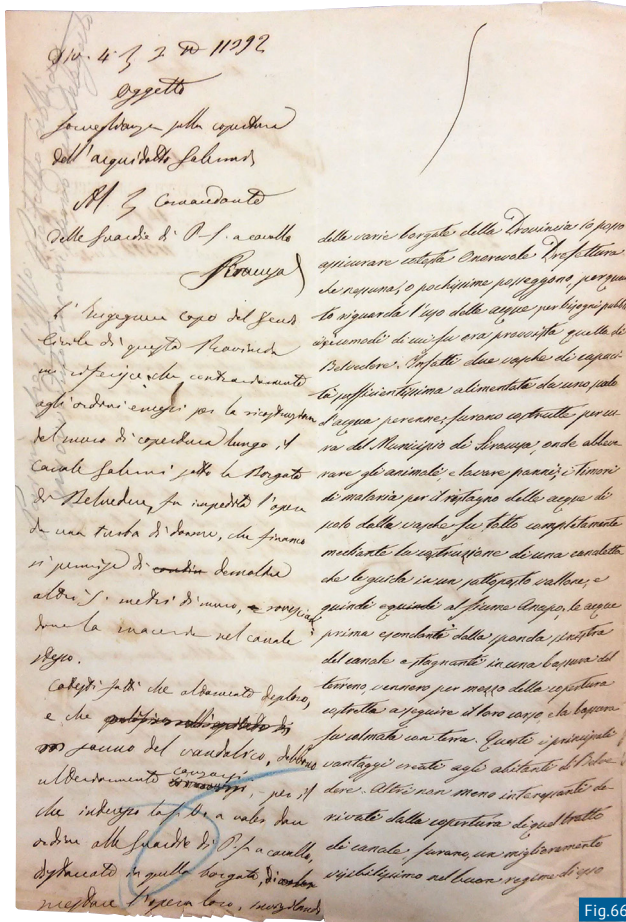 Div. 4 3 2 N 11392
Oggetto
Sorveglianza sulla copertura
dell'acquidotto Galermi
Al Comandante
delle Guardie di P. S. a cavallo
Siracusa
L'Ingegnere capo del Genio
Civile di questa Provincia
mi riferisce che contrariamente
agli ordini emessi per la ricostruzione
del muro di copertura lungo il
Canale Galermi sotto la Borgata
di Belvedere, fu impedita l'opera
da una turba di donne, che financo
si permise di demolire
altri 5 metri di muro, rovescian
done la macerie nel canale
stesso.
Codesti fatti che altamente deploro,
e che
sanno del vandalico, debbono
, per il
che interesso la S. V. a voler dare
ordine alle Guardie di P. S. a cavallo,
distaccate in quella borgata, di
l'opera loro,
delle varie borgate della Provincia io posso
assicurare cotesta Onorevole Prefettura
che nessuna, o pochissime posseggono, per quan
to riguarda l'uso delle acque per bisogni pubbli
ci, i comodi di cui fu ora provvista quella di
Belvedere. Infatti due vasche di capaci
tà sufficientissima alimentate da uno zampillo
d'acqua perenne, furono costrutte per cu
ra del Municipio di Siracusa, onde abbeve
rare gli animali, e lavare panni; i timori
di malaria per il ristagno delle acque di
scolo dalla vasche fu tolto completamente
mediante la costruzione di una canaletta
che le guida in un sottoposto vallone, e
quindi al fiume Anapo, le acque
prima espandenti dalla sponda sinistra
del canale e stagnanti in una bassura del
terreno vennero per mezzo della copertura
costrette a seguire il loro corso, e la bassura
fu colmata con terra. Questi i principali
vantaggi creati agli abitanti di Belve
dere. Altri non meno interessanti de
rivati dalla copertura di quel tratto
di canale, furono, un miglioramento
visibilissimo nel buon regime di esso
Fig.66